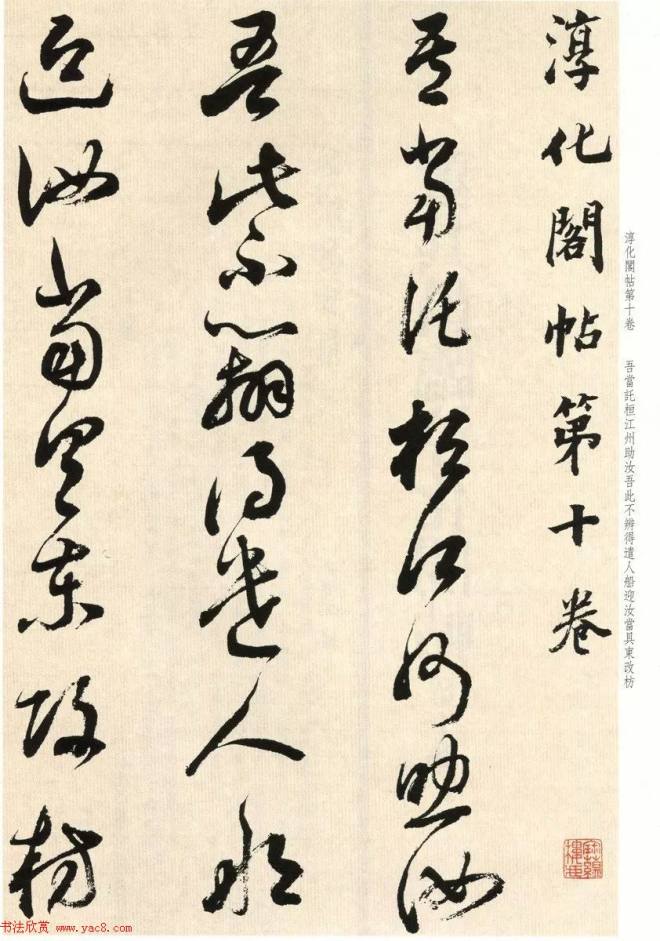 淳化閣帖第十卷　吾當託桓江州助汝吾此不辨得遣人船迎汝當具東改枋
淳化閣帖第十卷
吾當託桓江州助汝
吾此不辨得遣人船
迎汝當具東改枋
书法欣赏 www.yac8.com